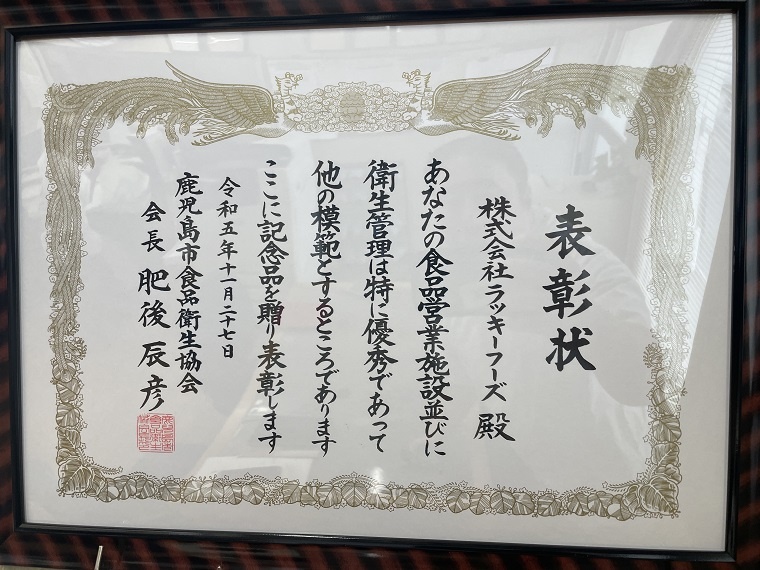 表彰状
株式会社ラッキーフーズ 殿
あなたの食品営業施設並びに
衛生管理は特に優秀であって
他の模範とするところであります
ここに記念品を贈り表彰します
令和五年十一月二十七日
鹿児島市食品衛生協会
会長 肥後辰彦